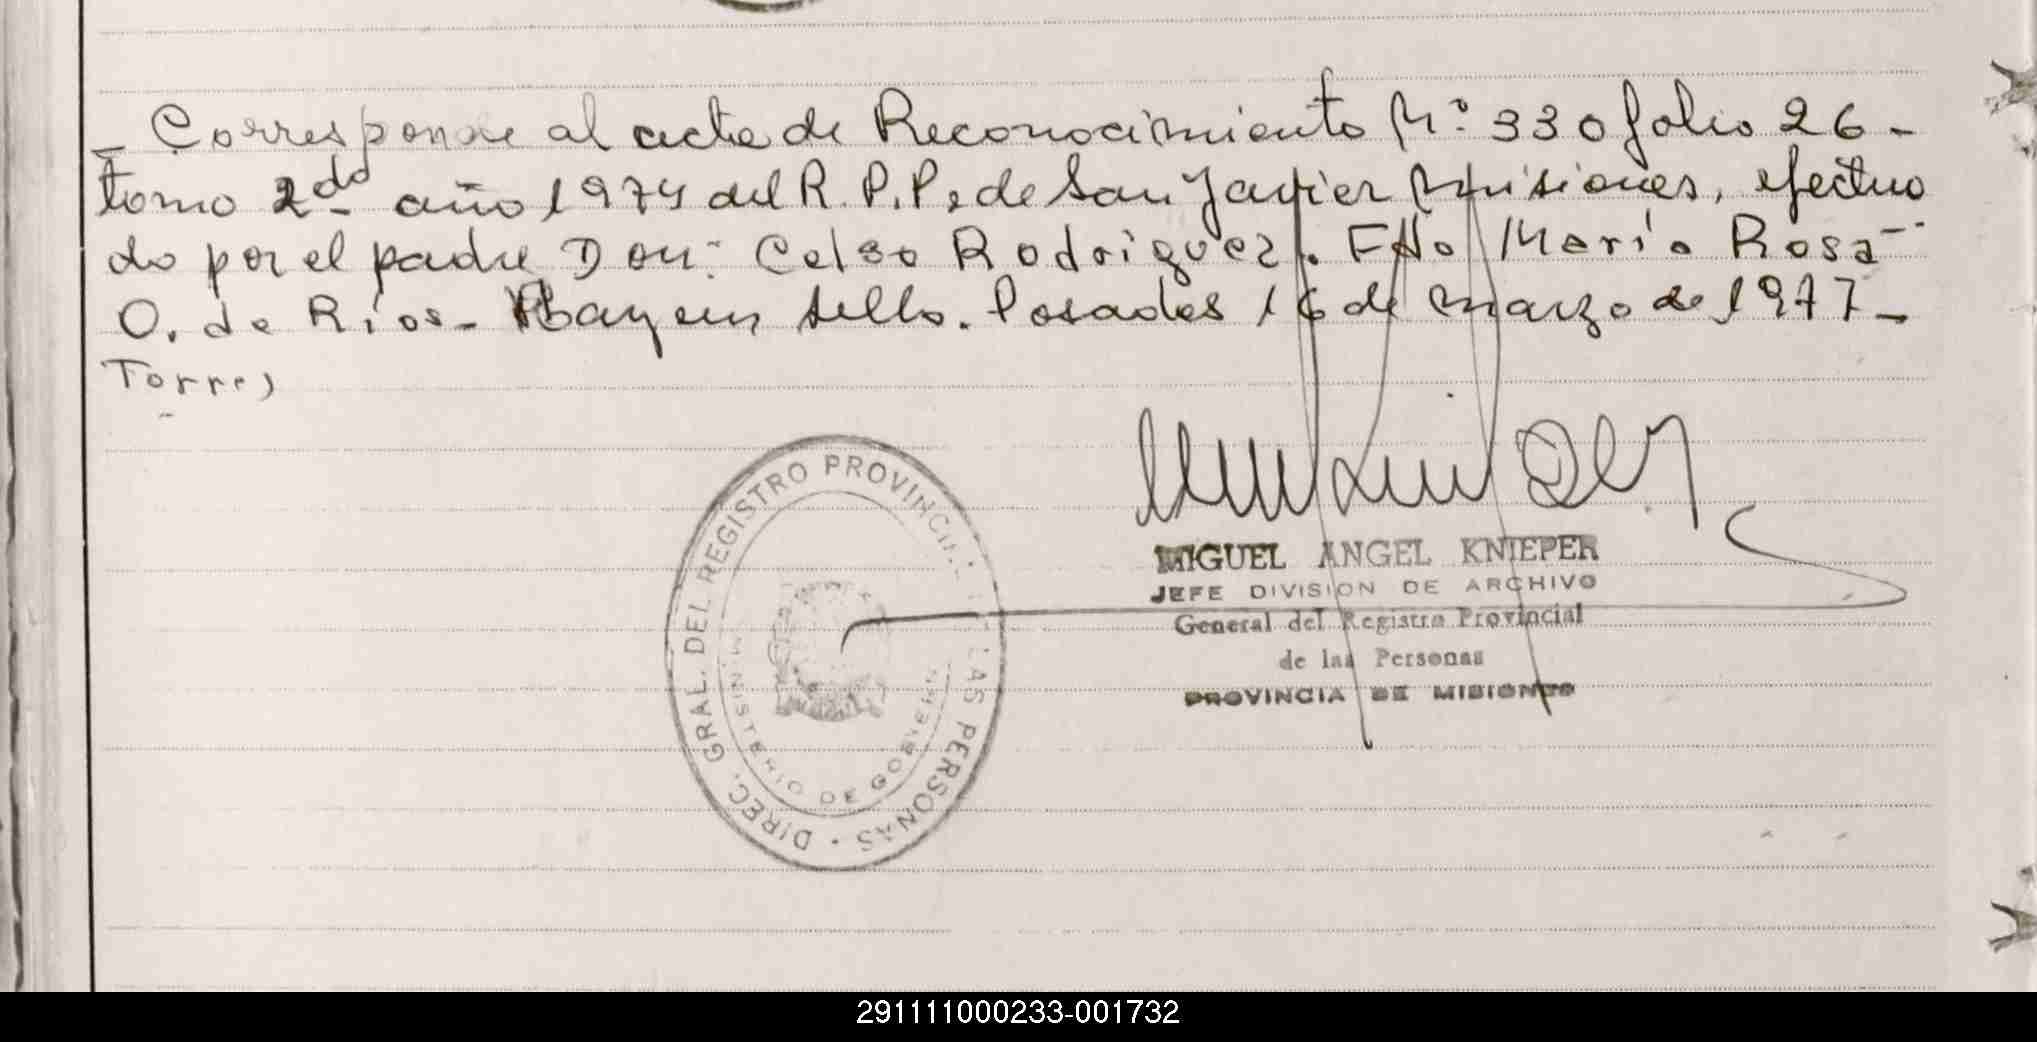 - Corresponde al acta de Reconocimiento Nº 330 folio 26 -
tomo 2do - año 1974 del R. P. P. de San Javier Misiones, efectua
do por el padre Don: Celso Rodriguez. FDo María Rosa --
O. de Ríos - Hay un sello. Posadas 16 de marzo de 1977 -
Torres
DIREC. GRAL. DEL REGISTRO PROVINCIAL DE LAS PERSONAS
MINISTERIO DE GOBIERNO
MIGUEL ANGEL KNIEPER
JEFE DIVISION DE ARCHIVO
General del Registro Provincial
de las Personas
PROVINCIA DE MISIONES
291111000233-001732